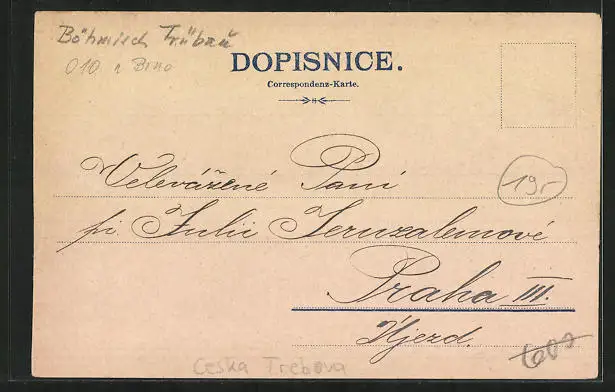 Böhmisch Trübau
010 n Brno
DOPISNICE.
Correspondenz-Karte.
19,-
Velevážené Paní
pí. Julii Jeruzalemové
Praha III.
Újezd.
600
Ceska Trebova